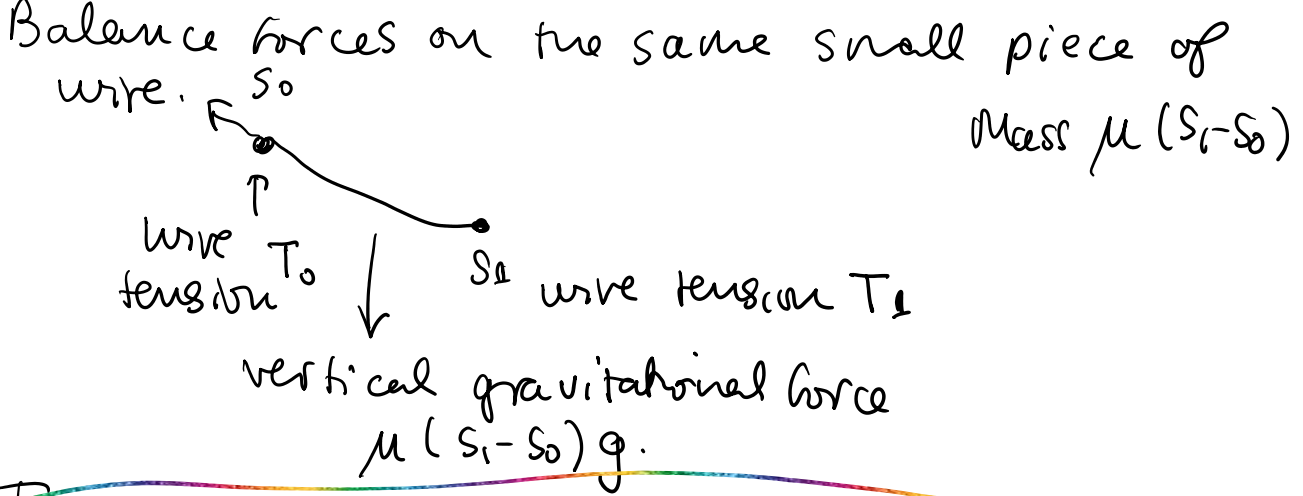 Balance forces on the same small piece of
wire.
S₀
Mass μ (S₁-S₀)
wire
tension T₀
S₁ wire tension T₁
vertical gravitational force
μ (S₁-S₀) g.